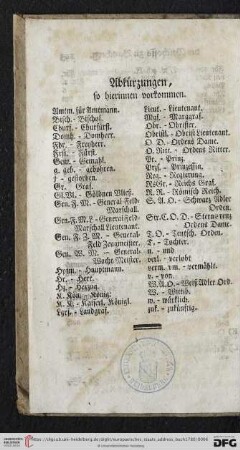 Abkürzungen,
so hierinnen vorkommen.
Amtm. für Amtmann.
Bisch. - Bischof.
Churf. - Churfürst.
Domh. - Domherr.
Frh. - Freyherr.
Frst. - Fürst.
Gem. - Gemahl.
g. geb. - gebohren.
† - gestorben.
Gr. - Graf.
Gl. Vl. - Göldnen Vließ.
Gen. F. M. - General-Feld-
Marschall.
Gen. F. M. L - General-Feld-
Marschall Lieutenant.
Gen. F. Z. M. - General-
Feld Zeugmeister.
Gen. W. M. - General-
Wacht Meister.
Hptm. - Hauptmann.
Hr. - Herr.
Hz. - Herzog.
K. Kön. - König.
K. K. - Kaiserl. Königl.
Lgrf. - Landgraf.
Lieut. - Lieutenant.
Mgf. - Marggraf.
Obr. - Obrister.
Obristl. - Obrist Lieutenant.
O. D. - Ordens Dame.
O. Ritt. - Ordens Ritter.
Pr. - Prinz.
Prß. - Prinzessin.
Reg. - Regierung.
RGr. - Reichs Graf.
R. R. - Römisch Reich.
S. A. O. - Schwarz Adler
Orden.
Str. C. O. D. - Sternkreuz
Ordens Dame.
T. O. - Teutsch. Orden.
T. - Tochter.
u. - und
verl. - verlobt
verm. vm. - vermählt.
v. - von.
W. A. O. - Weiß Adler Ord.
W. - Wittib.
w. - würklich.
zuk. - zukünftig.
DFG